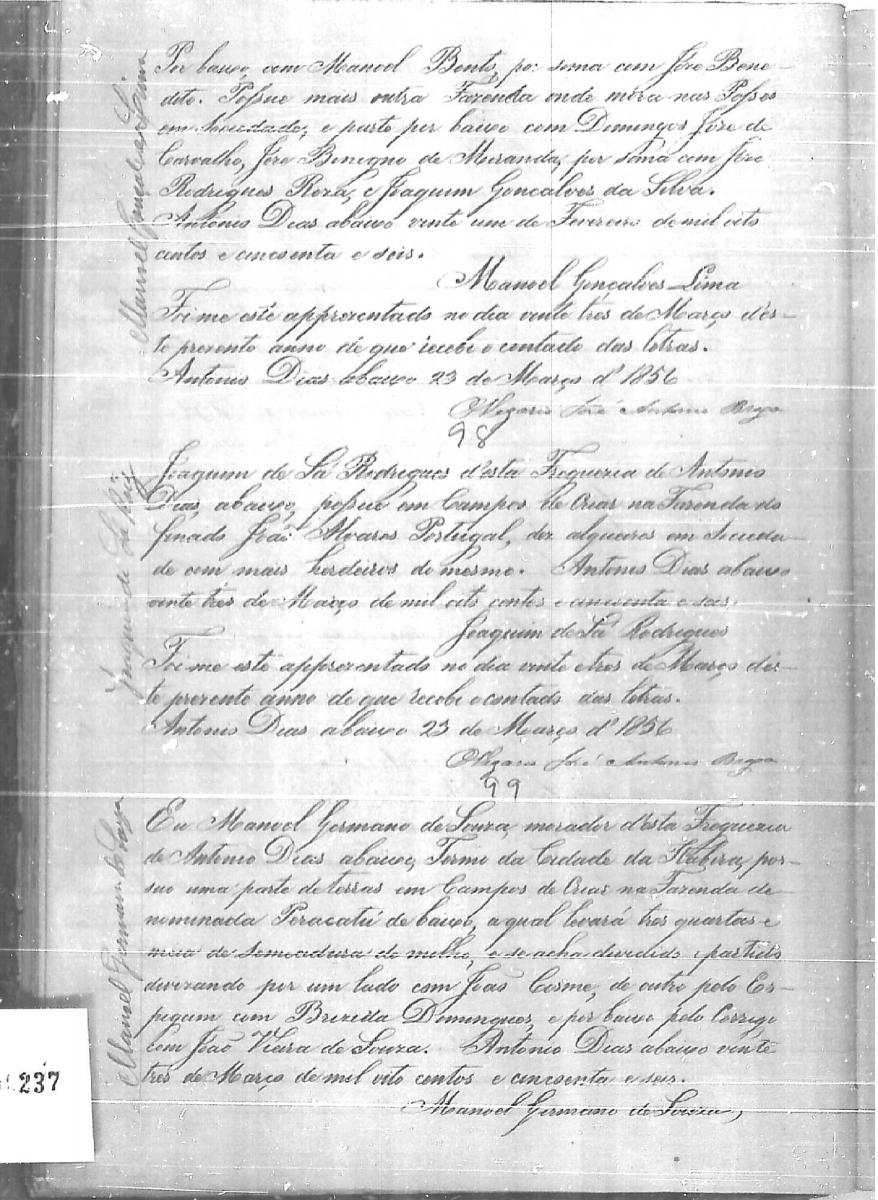 Por baixo, com Manoel Bento, por sima com Jòze Bene-
dito. Possue mais outra Fazenda onde móra nas Posses
em Sociedade, e parte por baixo com Domingos Józe de
Carvalho, Józe Benegno de Meranda, por sima com Józe
Rodrigues Roza, e Joaquim Gonçalves da Silva.
Antonio Dias abaixo vinte um de Fevereiro de mil oito
centos e cincoenta e seis.
Manoel Gonçalves Lima
Foi me este apprezentado no dia vinte trés de Março d'es-
te prezente anno de que recebi o contado das letras.
Antonio Dias abaixo 23 de Março d' 1856
Olegario José Antonio Braga
98
Joaquim de Sá Rodrigues d'esta Freguezia de Antonio
Dias, abaixo, possue em Campos de Criar na Fazenda do
finado João Alvares Portugal, dez alqueires em Socieda-
de com mais herdeiros do mesmo. Antonio Dias abaixo
vinte trés de Março de mil oito centos e cincoenta e seis.
Joaquim de Sá Rodrigues
Foi me este apprezentado no dia vinte e tres de Março d'es-
te prezente anno de que recebi o contado das letras.
Antonio Dias abaixo 23 de Março d' 1856
Olegario José Antonio Braga
99
Eu Manoel Germano de Souza, morador d'esta Freguezia
de Antonio Dias abaixo, Termo da Cidade da Itabira, pos-
suo uma parte de terras em Campos de Criar na Fazenda de-
nominada Peracatú de baixo, a qual levará tres quartas e
meia de semeadura de milho, e se acha devidido e partido
divizando por um lado com João Cosme, de outro pelo Es-
pigum com Brizida Domingues, e por baixo pelo Corrego
com João Vieira de Souza. Antonio Dias abaixo vinte
tres de Março de mil oito centos e cincoenta e seis.
Manoel Germano de Souza,
Manoel Gonçalves Lima
Joaquim de Sá Roiz
Manoel Germano de Souza
237